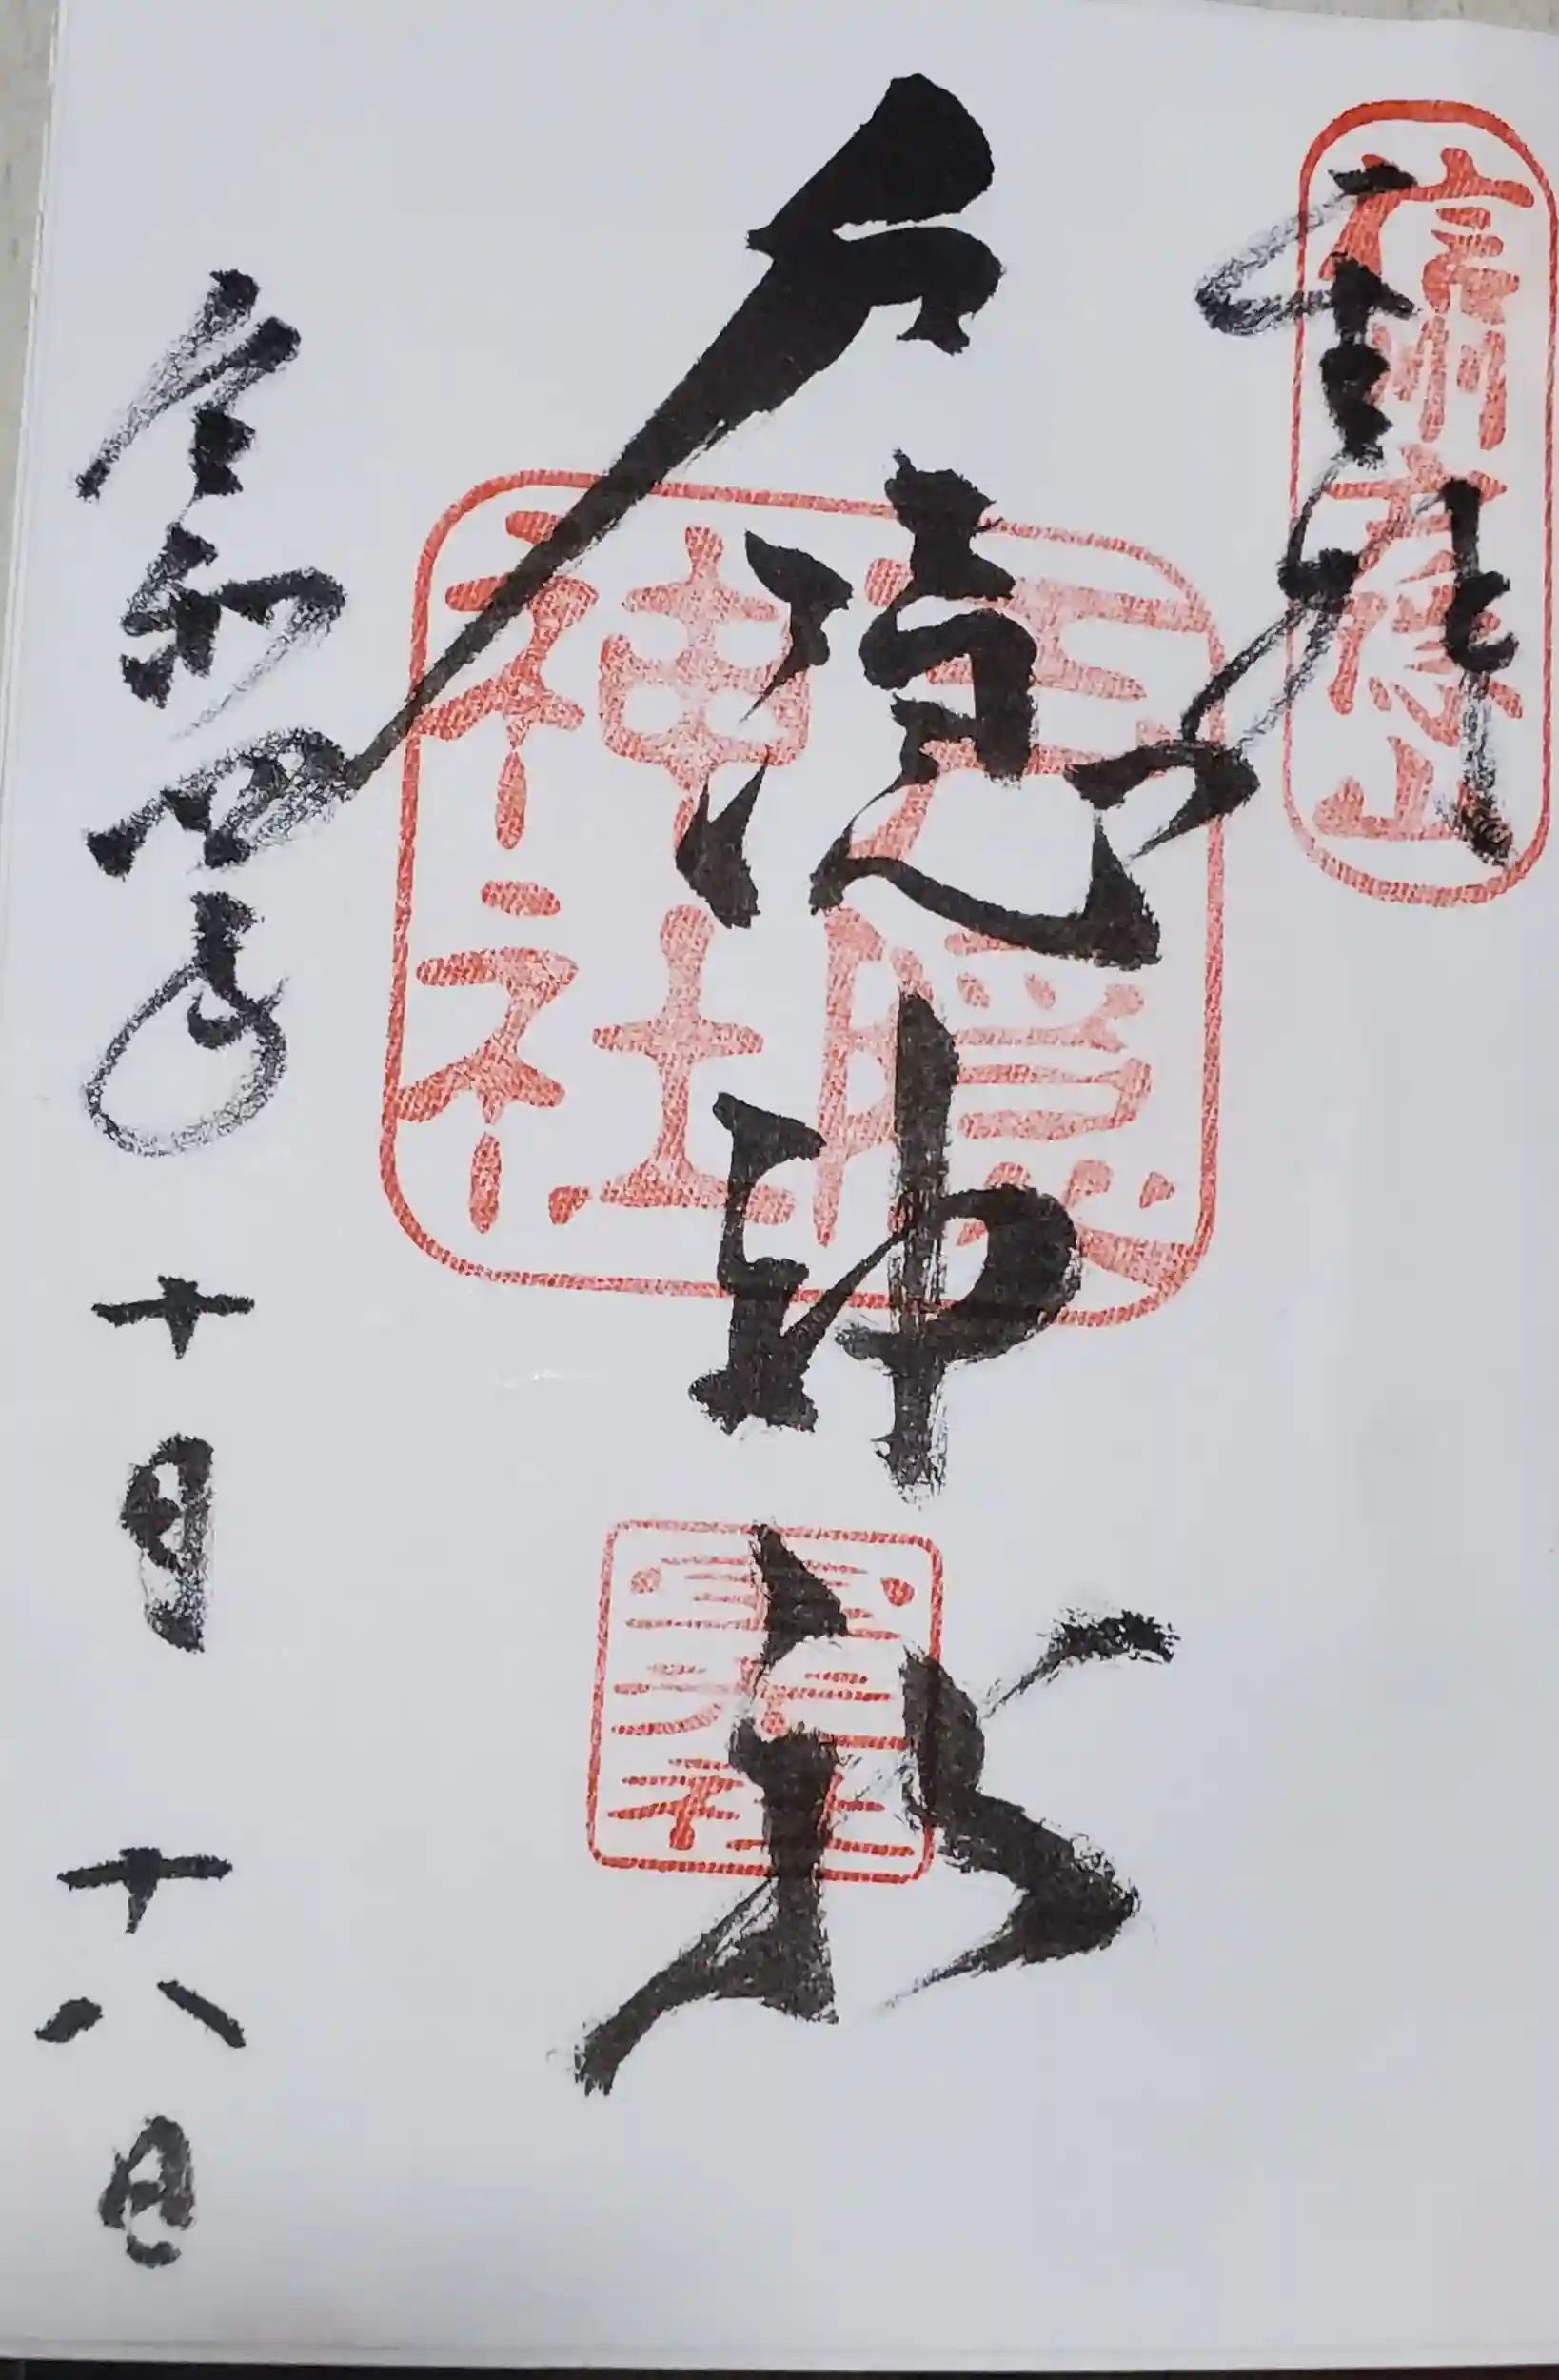 信州戸隠山
奉拝
戸隠神社
戸隠
神社
令和四年十月十八日